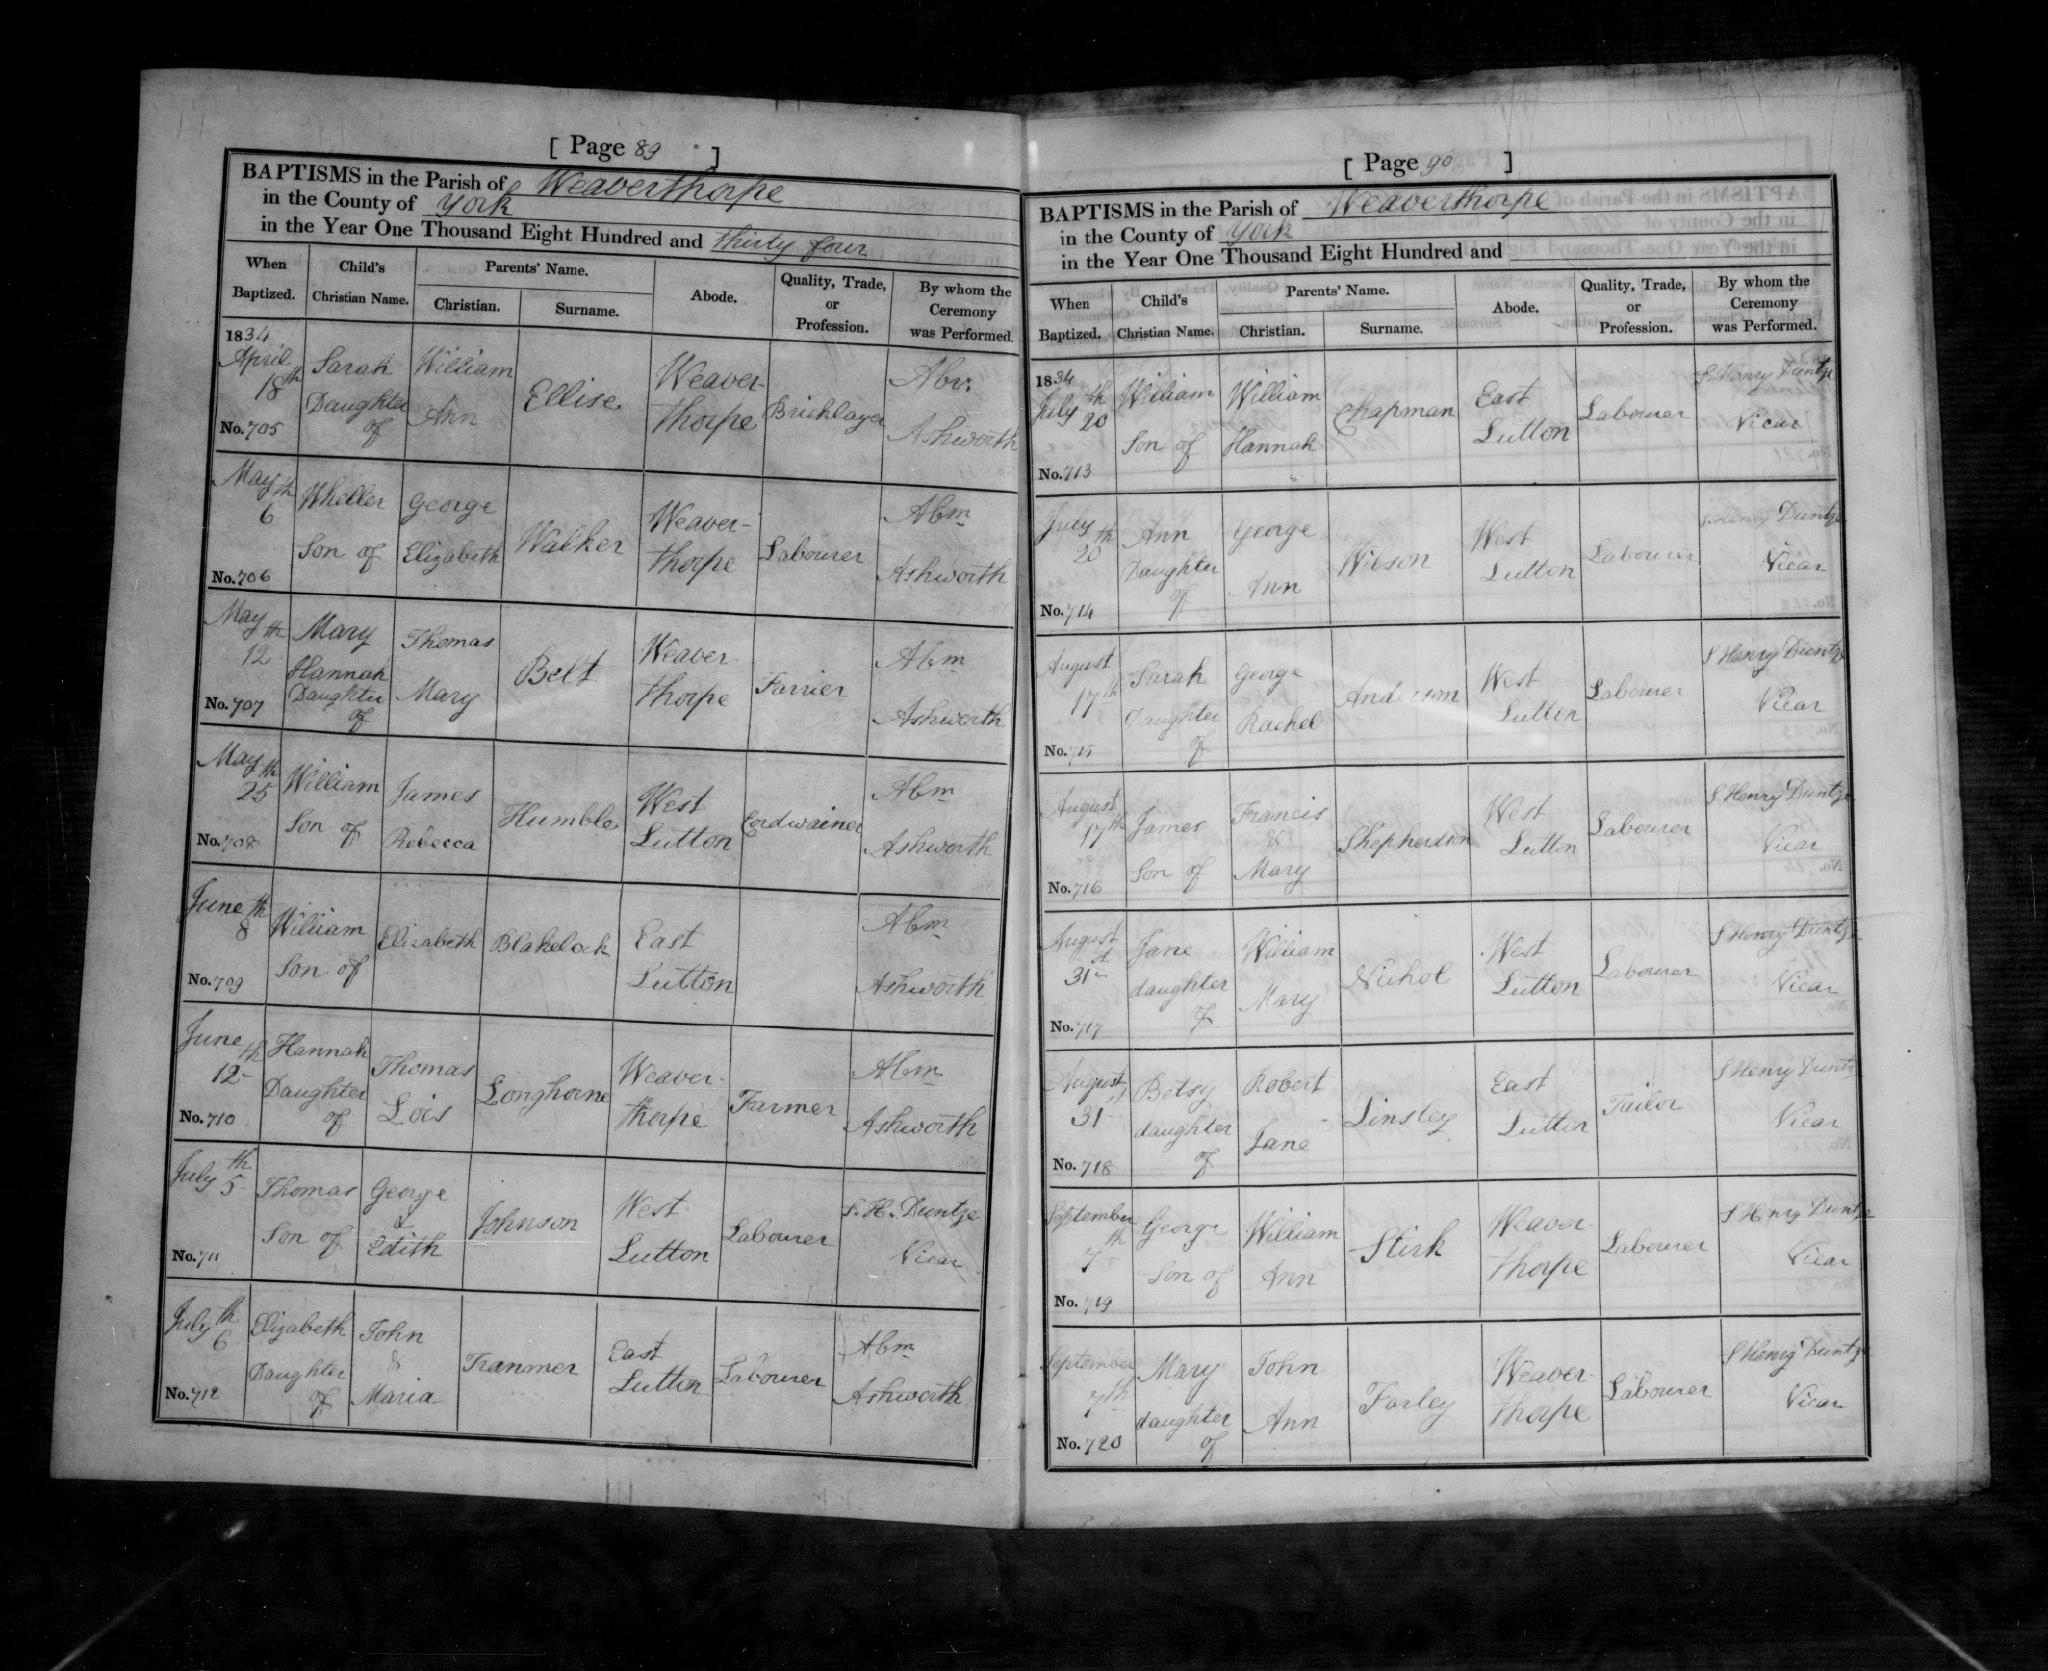 [ Page 89 ]
BAPTISMS in the Parish of Weaverthorpe
in the County of York
in the Year One Thousand Eight Hundred and thirty four
When Baptized. Child's Christian Name. Parents' Name. Christian. Surname. Abode. Quality, Trade, or Profession. By whom the Ceremony was Performed.
1834 April 18th No. 705 Sarah Daughter of William Ann Ellise Weaver-thorpe Bricklayer Abr. Ashworth
May 6th No. 706 Wheller Son of George Elizabeth Walker Weaver-thorpe Labourer Abm Ashworth
May 12th No. 707 Mary Hannah Daughter of Thomas Mary Belt Weaver-thorpe Farrier Abm Ashworth
May 25th No. 708 William Son of James Rebecca Humble West Lutton Cordwainer Abm Ashworth
June 8th No. 709 William Son of Elizabeth Blakelock East Lutton Abm Ashworth
June 12th No. 710 Hannah Daughter of Thomas Lois Longhorne Weaver-thorpe Farmer Abm Ashworth
July 5th No. 711 Thomas Son of George & Edith Johnson West Lutton Labourer S. H. Duntze Vicar
July 6th No. 712 Elizabeth Daughter of John & Maria Tranmer East Lutton Labourer Abm Ashworth
[ Page 90 ]
BAPTISMS in the Parish of Weaverthorpe
in the County of York
in the Year One Thousand Eight Hundred and
When Baptized. Child's Christian Name. Parents' Name. Christian. Surname. Abode. Quality, Trade, or Profession. By whom the Ceremony was Performed.
1834 July 20th No. 713 William Son of William Hannah Chapman East Lutton Labourer S Henry Duntze Vicar
July 20th No. 714 Ann Daughter of George Ann Wilson West Lutton Labourer S Henry Duntze Vicar
August 17th No. 715 Sarah Daughter of George Rachel Anderson West Lutton Labourer S Henry Duntze Vicar
August 17th No. 716 James Son of Francis & Mary Shepherdson West Lutton Labourer S Henry Duntze Vicar
August 31st No. 717 Jane daughter of William Mary Nichol West Lutton Labourer S Henry Duntze Vicar
August 31st No. 718 Betsy daughter of Robert Jane Linsley East Lutton Tailor S Henry Duntze Vicar
September 7th No. 719 George Son of William Ann Stirk Weaver-thorpe Labourer S Henry Duntze Vicar
September 7th No. 720 Mary daughter of John Ann Farley Weaver-thorpe Labourer S Henry Duntze Vicar